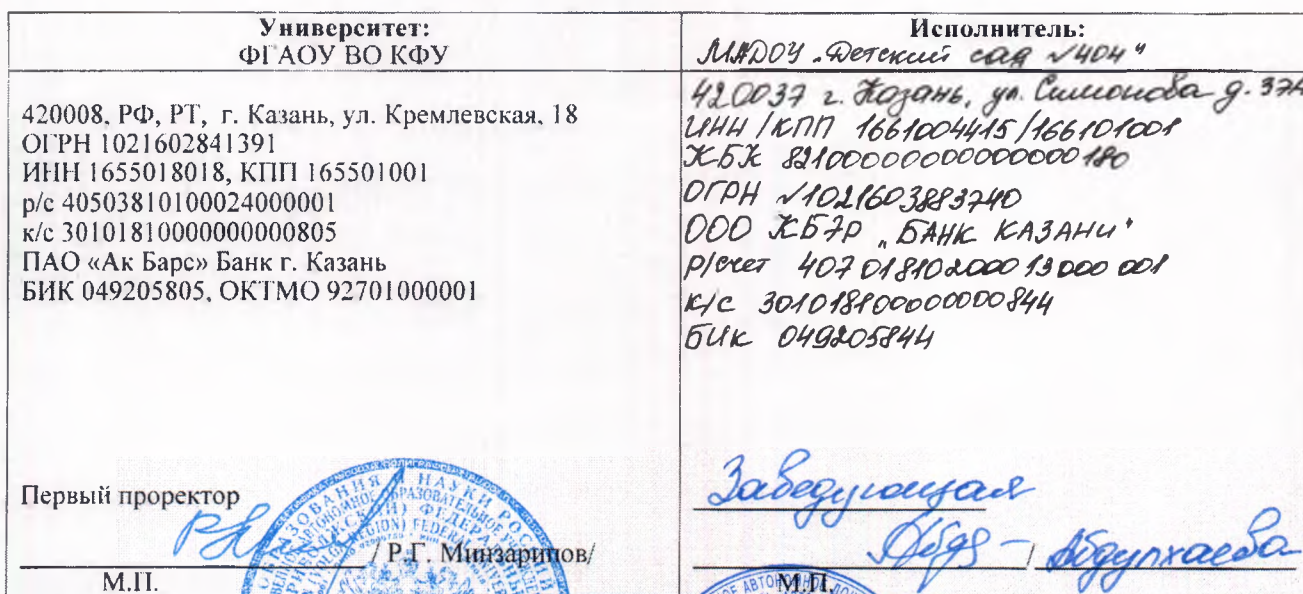 Университет:
ФГАОУ ВО КФУ
420008, РФ, РТ, г. Казань, ул. Кремлевская, 18
ОГРН 1021602841391
ИНН 1655018018, КПП 165501001
р/с 40503810100024000001
к/с 30101810000000000805
ПАО «Ак Барс» Банк г. Казань
БИК 049205805, ОКТМО 92701000001
Первый проректор
/ Р.Г. Минзарипов/
М.П.
Исполнитель:
МАДОУ „Детский сад №404"
420037 г. Казань, ул. Симонова д. 37А
ИНН/КПП 1661004415/166101001
КБК 82100000000000000180
ОГРН №1021603883740
ООО КБЭР „БАНК КАЗАНИ"
р/счет 40701810200013000001
к/с 30101810000000844
БИК 049205844
Заведующая
/ Абдулхаева
М.П.